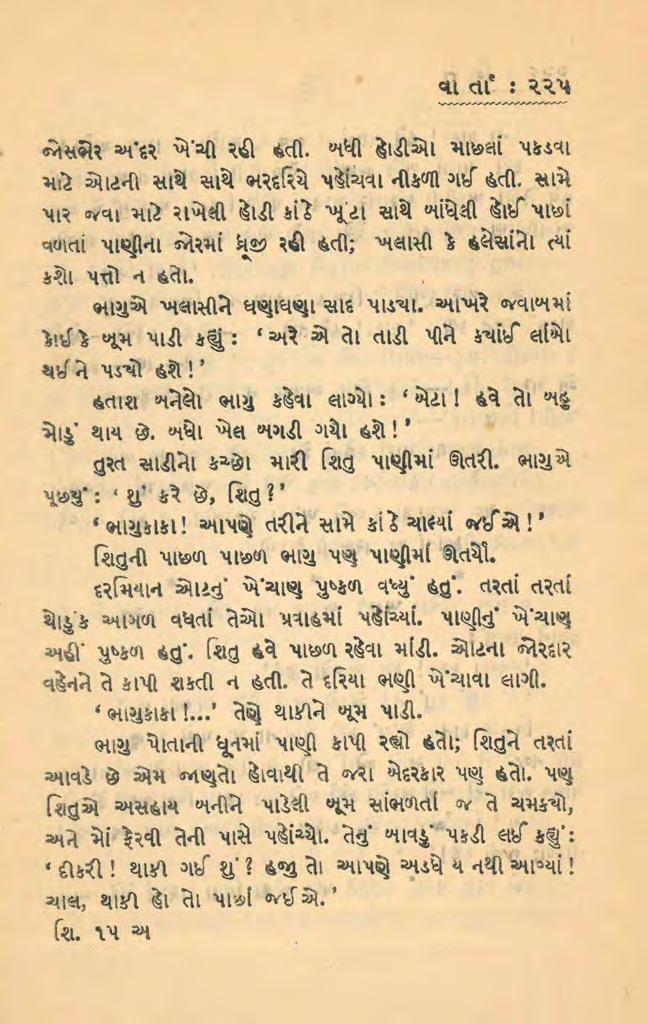 વા ર્તા : ૨૨૫
જોસભેર અંદર ખેંચી રહી હતી. બધી હોડીઓ માછલાં પકડવા
માટે ઓટની સાથે સાથે ભરદરિયે પહોંચવા નીકળી ગઈ હતી. સામે
પાર જવા માટે રાખેલી હોડી કાંઠે ખૂંટા સાથે બાંધેલી હોઈ પાછાં
વળતાં પાણીના જોરમાં ધ્રૂજી રહી હતી; ખલાસી કે હલેસાંનો ત્યાં
કશો પત્તો ન હતો.
ભાગુએ ખલાસીને ઘણાઘણા સાદ પાડ્યા. આખરે જવાબમાં
કોઈકે બૂમ પાડી કહ્યું : ‘અરે એ તો તાડી પીને ક્યાંઈ લાંબો
થઈને પડ્યો હશે!’
હતાશ બનેલો ભાગુ કહેવા લાગ્યો : ‘બેટા! હવે તો બહુ
મોડું થાય છે. બધો ખેલ બગડી ગયો હશે!’
તુરત સાડીનો કચ્છો મારી શિતુ પાણીમાં ઊતરી. ભાગુએ
પૂછ્યું : ‘શું કરે છે, શિતુ?’
‘ભાગુકાકા! આપણે તરીને સામે કાંઠે ચાલ્યાં જઈએ!’
શિતુની પાછળ પાછળ ભાગુ પણ પાણીમાં ઊતર્યો.
દરમિયાન ઓટનું ખેંચાણ પુષ્કળ વધ્યું હતું. તરતાં તરતાં
થોડુંક આગળ વધતાં તેઓ પ્રવાહમાં પહોંચ્યાં. પાણીનું ખેંચાણ
અહીં પુષ્કળ હતું. શિતુ હવે પાછળ રહેવા માંડી. ઓટના જોરદાર
વહેનને તે કાપી શકતી ન હતી. તે દરિયા ભણી ખેંચાવા લાગી.
‘ભાગુકાકા!...’ તેણે થાકીને બૂમ પાડી.
ભાગુ પોતાની ધૂનમાં પાણી કાપી રહ્યો હતો; શિતુને તરતાં
આવડે છે એમ જાણતો હોવાથી તે જરા બેદરકાર પણ હતો. પણ
શિતુએ અસહાય બનીને પાડેલી બૂમ સાંભળતાં જ તે ચમક્યો,
અને મોં ફેરવી તેની પાસે પહોંચ્યો. તેનું બાવડું પકડી લઈ કહ્યું :
‘દીકરી! થાકી ગઈ શું? હજી તો આપણે અડધે ય નથી આવ્યાં!
ચાલ, થાકી હો તો પાછાં જઈએ.’
શિ. ૧૫ અ